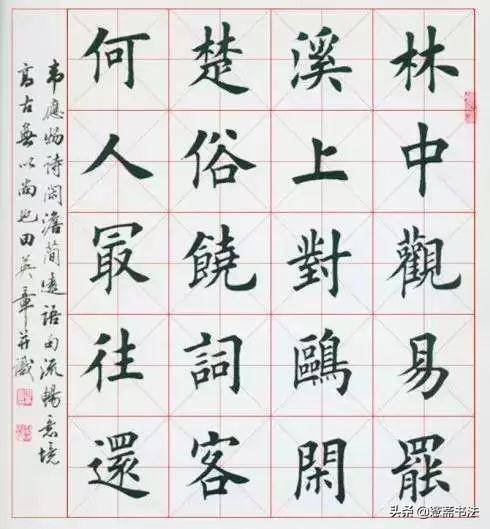 林中觀易罷
溪上對鷗閑
楚俗饒詞客
何人最往還
韦應物诗閑澹簡遠語句流暢意境
高古無以尚也田英章并識
头条@憨斋书法